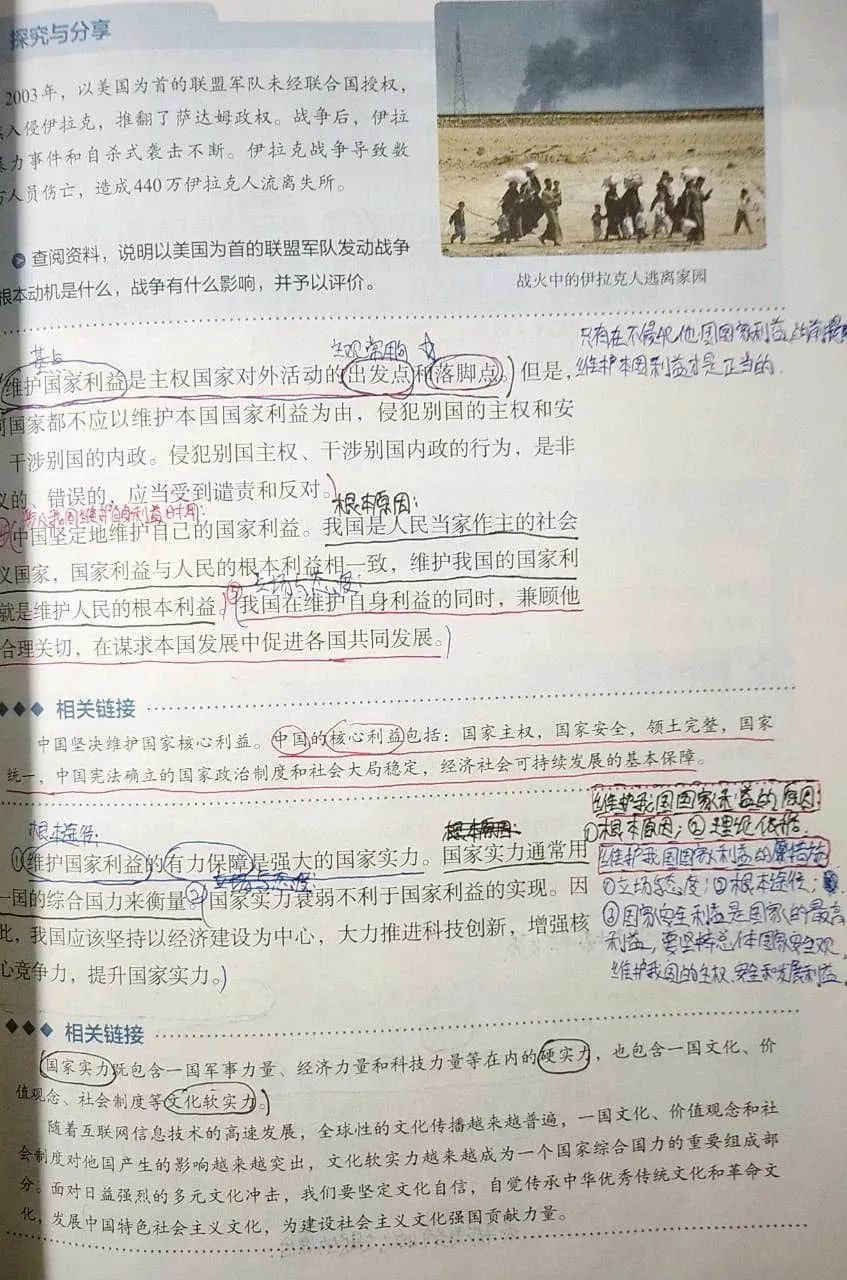 探究与分享
2003年，以美国为首的联盟军队未经联合国授权，
入侵伊拉克，推翻了萨达姆政权。战争后，伊拉
暴力事件和自杀式袭击不断。伊拉克战争导致数
万人员伤亡，造成440万伊拉克人流离失所。
查阅资料，说明以美国为首的联盟军队发动战争
根本动机是什么，战争有什么影响，并予以评价。
战火中的伊拉克人逃离家园
只有在不侵犯他国国家利益的前提
维护本国利益才是正当的.
维护国家利益是主权国家对外活动的出发点和落脚点。但是，
何国家都不应以维护本国国家利益为由，侵犯别国的主权和安
干涉别国的内政。侵犯别国主权、干涉别国内政的行为，是非
义的、错误的，应当受到谴责和反对。
根本原因：
中国坚定地维护自己的国家利益。我国是人民当家作主的社会
义国家，国家利益与人民的根本利益相一致，维护我国的国家利
立场与态度：
就是维护人民的根本利益。⑤我国在维护自身利益的同时，兼顾他
合理关切，在谋求本国发展中促进各国共同发展。
相关链接
中国坚决维护国家核心利益。中国的核心利益包括：国家主权，国家安全，领土完整，国家
统一，中国宪法确立的国家政治制度和社会大局稳定，经济社会可持续发展的基本保障。
维护我国国家利益的原因：
①根本原因；②理论依据.
维护我国国家利益的措施
①立场与态度；②根本途径；
③国家安全利益是国家的最高
利益，要坚持总体国家安全观，
维护我国的主权、安全和发展利益.
根本途径：
①维护国家利益的有力保障是强大的国家实力。国家实力通常用
一国的综合国力来衡量。②国家实力衰弱不利于国家利益的实现。因
此，我国应该坚持以经济建设为中心，大力推进科技创新，增强核
心竞争力，提升国家实力。
相关链接
国家实力既包含一国军事力量、经济力量和科技力量等在内的硬实力，也包含一国文化、价
值观念、社会制度等文化软实力。
随着互联网信息技术的高速发展，全球性的文化传播越来越普遍，一国文化、价值观念和社
会制度对他国产生的影响越来越突出，文化软实力越来越成为一个国家综合国力的重要组成部
分。面对日益强烈的多元文化冲击，我们要坚定文化自信，自觉传承中华优秀传统文化和革命文
化，发展中国特色社会主义文化，为建设社会主义文化强国贡献力量。